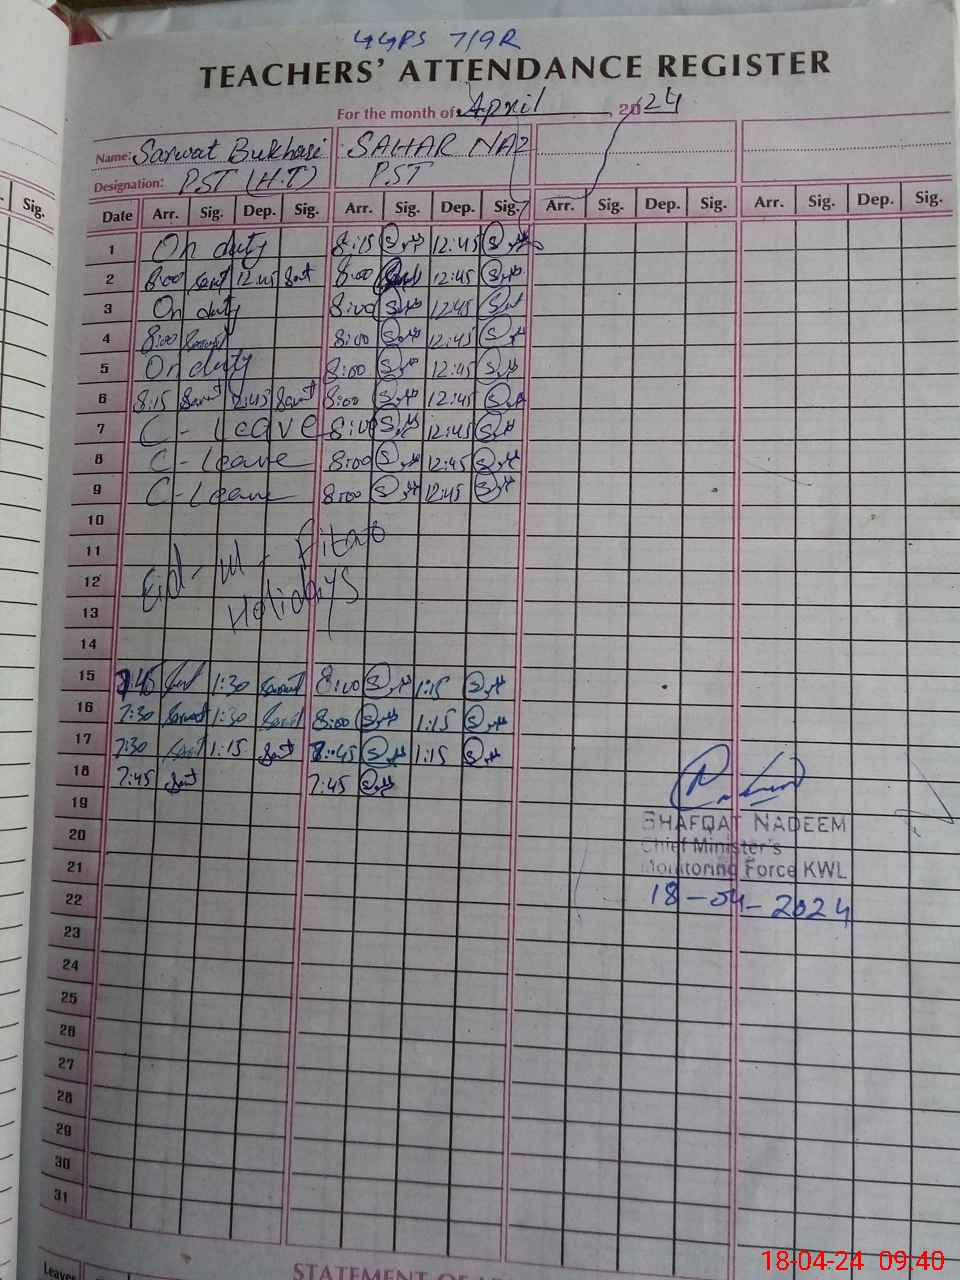 GGPS 7/9R
TEACHERS' ATTENDANCE REGISTER
For the month of April 2024
Name: Sarwat Bukhari SAHAR NAZ
Designation: PST (H.T) PST
Date Arr. Sig. Dep. Sig. Arr. Sig. Dep. Sig. Arr. Sig. Dep. Sig. Arr. Sig. Dep. Sig.
1 On duty 8:15 12:45
2 8:00 12:45 8:00 12:45
3 On duty 8:00 12:45
4 8:00 8:00 12:45
5 On duty 8:00 12:45
6 8:15 12:45 8:00 12:45
7 C-Leave 8:00 12:45
8 C-Leave 8:00 12:45
9 C-Leave 8:00 12:45
10
11 Eid-ul-Fitar
12 Holidays
13
14
15 7:45 1:30 8:00 1:15
16 7:30 1:30 8:00 1:15
17 7:30 1:15 1:15
18 7:45 7:45
19
20
21
22
23
24
25
26
27
28
29
30
31
SHAFQAT NADEEM
Chief Minister's
Monitoring Force KWL
18-04-2024
Leaves
STATEMENT OF
Sig.
18-04-24 09:40